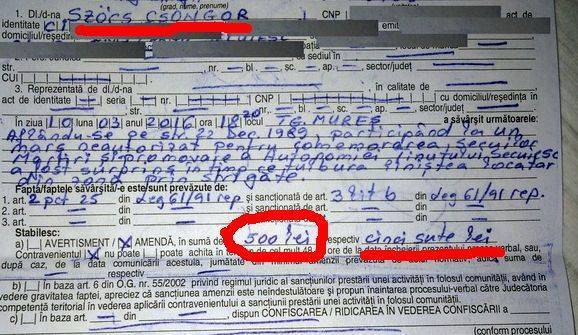 (grad, nume, prenume)
1. Dl./d-na SZŐCS CSONGOR
act de
identitate CI CNP emit
domiciliul/reşedinţ sector/judeţ
cu sediul în
str. nr. bl. sc. ap. sector/judeţ
CUI
3. Reprezentată de dl./d-na
act de identitate seria nr. CNP cu domiciliul/reşedinţa în
str. nr. bl. sc. ap. sector/judeţ
În ziua 10 luna 03 anul 2016 ora 18 20 locul TG. MUREŞ a săvârşit următoarele:
Aflându-se pe str. 22 Dec. 1989, participând la un
marş neautorizat pentru comemorarea Secuilor
Martiri şi promovare a Autonomiei Ţinutului Secuiesc
a fost surprins în timp ce tulbura liniştea locatar
din zonă prin strigăte.
Fapta/faptele săvârşită/-e este/sunt prevăzute de:
1. art. 2 pct 25 din leg 61/91 rep. şi sancţionată de art. 3 lit b din leg 61/91 rep.
2. art. din şi sancţionată de art. din
3. art. din şi sancţionată de art. din
Stabilesc:
a) AVERTISMENT / X AMENDĂ, în sumă de 500 lei respectiv cinci sute lei
Contravenientul X nu poate poate achita în termen de cel mult 48 ore de la data încheierii prezentului proces-verbal, sau,
după caz, de la data comunicării acestuia, jumătate din amenzii prevăzute de actul normativ, adică suma de
respectiv
b) În baza art. 6 din O.G. nr. 55/2002 privind regimul juridic al sancţiunii prestării unei activităţi în folosul comunităţii, având
vedere gravitatea faptei, apreciez că sancţiunea amenzii este neîndestulătoare şi propun înaintarea procesului-verbal către Judecătoria
competentă teritorial în vederea aplicării contravenientului a sancţiunii prestării unei activităţi în folosul comunităţii.
c) În baza art. din , dispun CONFISCAREA / RIDICAREA ÎN VEDEREA CONFISCĂRII a
(conform procesului